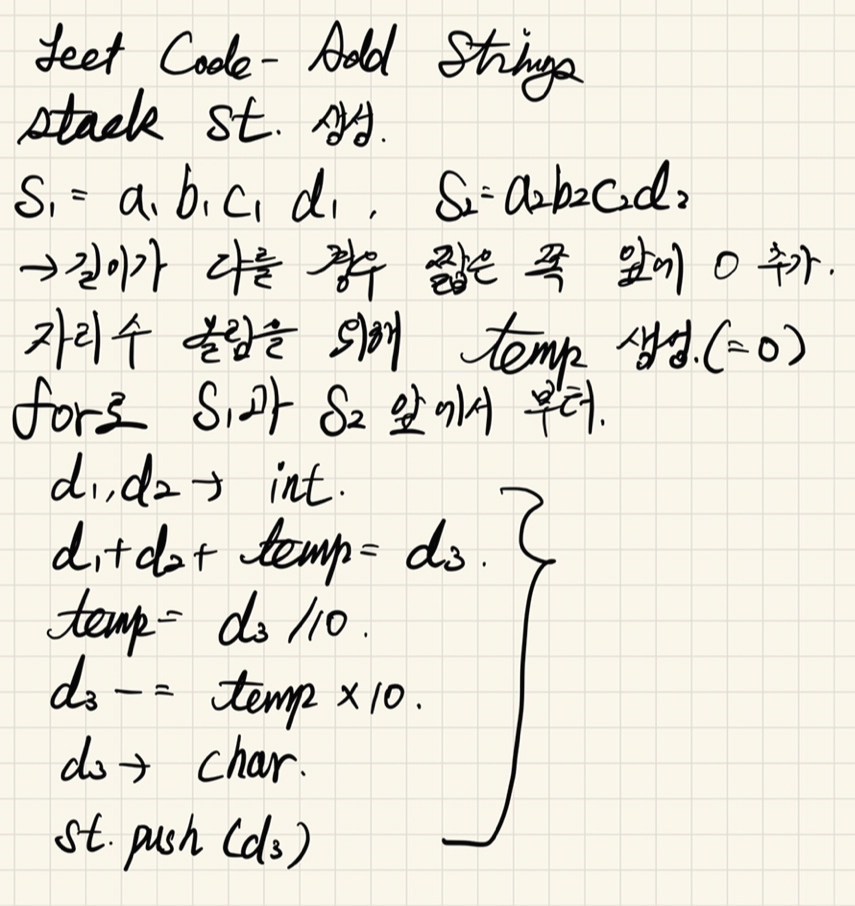 Leet Code - Add Strings
stack st. 생성.
S₁ = a₁ b₁ c₁ d₁ , S₂ = a₂b₂c₂d₂
→ 길이가 다를 경우 짧은 쪽 앞에 0 추가.
자리수 올림을 위해 temp 생성.(=0)
for로 S₁과 S₂ 앞에서 부터.
d₁,d₂ → int.
d₁+d₂+ temp = d₃.
temp = d₃ /10.
d₃ -= temp ×10.
d₃ → char.
st. push (d₃)